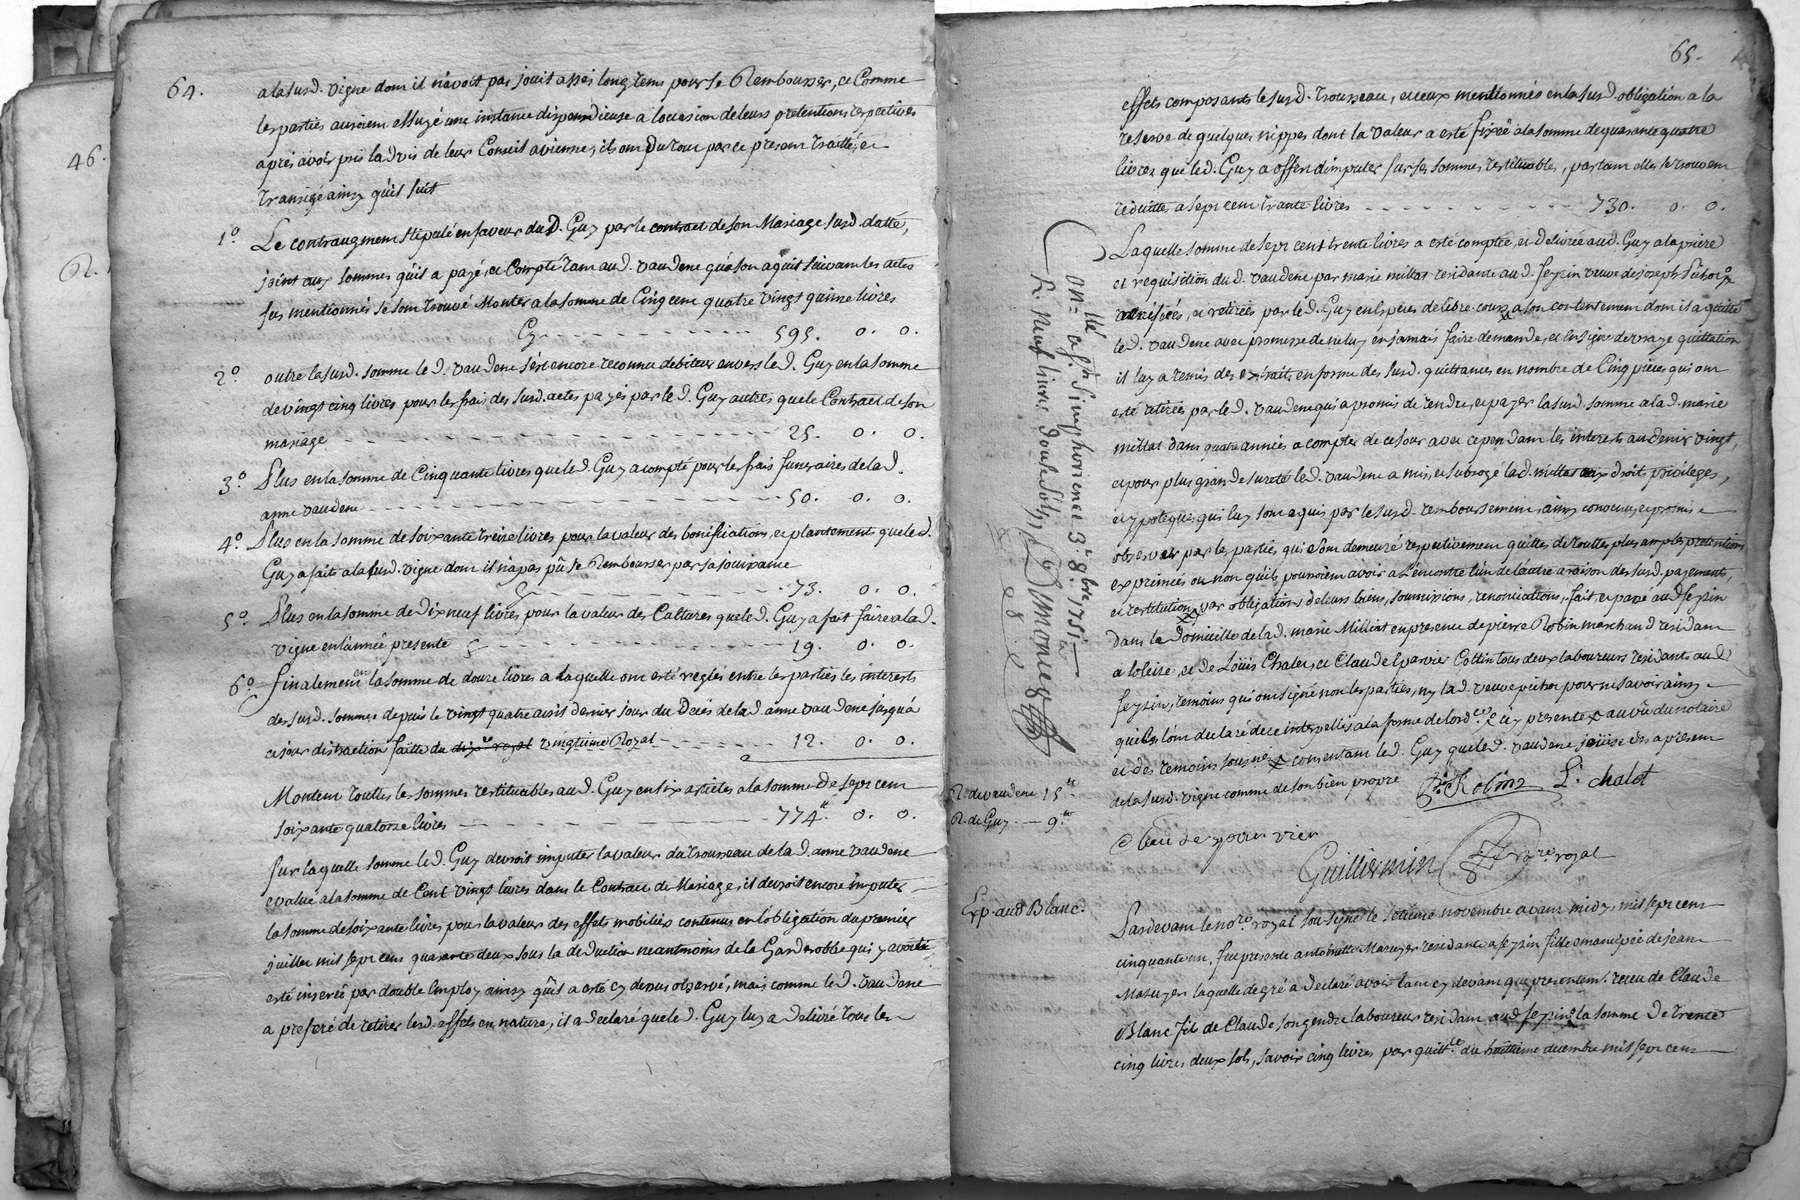 64.
a la susd. vigne dont il n'avoit pas jouit assés long tems pour se Rembourser, et Comme
les parties auroient essuyé une instance dispendieuse a loccasion de leurs pretentions respectives
après avoir pris ladvis de leur Conseil a vienne, ils ont du tout par ce present traitté, et
transigé ainsy qu'il suit
1º. Le contraugment stipulé en faveur du D. Guy par le contract de son Mariage susd. datté,
joint aux sommes qu'il a payé, et Compté tant aud. vaudene qu'a son aquit suivant les actes
sus mentionnés se sont trouvé Monter a la somme de Cinq cent quatre vingt quinze livres
Cy - - - - - - 595. 0. 0.
2º. outre la susd. somme led. vaudene s'est encore reconnu debiteur envers led. Guy en la somme
de vingt cinq livres pour les frais des susd. actes payés par led. Guy autres que le Contract de son
mariage - - - - - - 25. 0. 0.
3º. Plus en la somme de Cinquante livres que led. Guy a compté pour les frais funeraires de lad.
anne vaudene - - - - - - 50. 0. 0.
4º. Plus en la somme de soixante treize livres pour la valeur des bonifications, et plantement que led.
Guy a faits a la susd. vigne dont il n'a pas pû se Rembourser par sa jouissance
- - - - - - 73. 0. 0.
5º. Plus en la somme de dix neuf livres pour la valeur des Cultures que led. Guy a fait faire a lad.
vigne en l'année presente - - - - - - 19. 0. 0.
6º. finalement en la somme de douze livres a laquelle ont esté reglés entre les parties les interests
des susd. sommes depuis le vingt quatre avril dernier jour du Deces de lad. anne vaudene jusqu'a
ce jour distraction faitte du dixe royal vingtieme Royal - - - - 12. 0. 0.
Montent touttes les sommes restituables aud. Guy en six articles a la somme de sept cent
soixante quatorze livres - - - - - - 774.tt 0. 0.
sur laquelle somme led. Guy devroit imputer la valeur du trousseau de lad. anne vaudene
evalué a la somme de Cent vingt livres dans le Contract de Mariage, il devroit encore imputer
la somme de soixante livres pour la valeur des effets mobiliers contenus en l'obligation du premier
juillet mil sept cent quarante deux sous la deduction neantmoins de la Garderobbe qui y avoit
esté inserée par double Employ ainsy qu'il a esté cy dessus observé, mais comme led. vaudene
a preferé de retirer lesd. effets en nature, il a declaré que led. Guy luy a delivré tous les
46.
R.
65.
effets composants le susd. trousseau, et ceux mentionnés en la susd. obligation a la
reserve de quelques nippes dont la valeur a esté fixée a la somme de quarante quatre
livres que led. Guy a offert d'imputer sur ses sommes restituables, partant elles se trouvent
reduittes a sept cent trante livres - - - - - - 730. 0. 0.
Laquelle somme de sept cent trente livres a esté comptée, et delivrée aud. Guy a la priere
et requisition dud. vaudene par marie millat residante aud. feyzin veuve de joseph Pichot
verifiées, et retirées par led. Guy en Especes de libre cours a son contentement dont il a quitté
led. vaudene avec promesse de ne luy en jamais faire demande, et En signe de vraye quittation
il luy a remis des extraits en forme des susd. quittances en nombre de Cinq pieces qui ont
esté retirées par led. vaudene qui a promis de rendre, et payer la susd. somme a lad. marie
millat dans quatre années a compter de ce jour avec cependant les interests au denier vingt,
et pour plus grande sureté led. vaudene a mis, et subrogé lad. millat aux droits, privileges,
et ypoteques qui luy sont aquis par le susd. remboursement, ainsy convenu, et promis
observer par les parties, qui sont demeuré respectivement quittes de touttes plus amples pretentions
exprimées ou non qu'ils pourroient avoir a l'encontre l'un de l'autre a raison des susd. payements,
et restitution par obligations de leurs biens, soumissions, renonciations, fait et passé aud feyzin
dans le domicille de lad. marie Millat en presence de pierre Robin marchand residant
a loleize, et de Loüis Chalet, et Claude Esparvier Cottin tous deux laboureurs residants aud.
feyzin, temoins qui ont signé non les parties, ny lad. veuve pichot pour ne savoir ainsy
qu'ils l'ont declaré de ce interpellés a la forme de l'ordce cy presente au vû du notaire
et des temoins sousnés consentant led. Guy que led. vaudene jouisse dés apresent
de la susd. vigne comme de son bien propre Pre. Robin L. chalet
Claude esparvier
Guilliermin nore. royal
onlle. a St. Simphorien ce 3e. 8bre. 1751
R. neuf livres douze sols
Simonet
R. de vaudene 15tt
R. de Guy. — 9tt
Exp. aud Blanc.
Pardevant le nore. royal sousigné le septieme novembre avant midy, mil sept cent
cinquante un. fut presente antoinette Mazuyer residante a feyzin fille emancipée de jean
Mazuyer laquelle de gré a declaré avoir tant cy devant que presentemt. receu de Claude
Blanc fils de Claude son gendre laboureur residant aud feyzin la somme de trente
cinq livres deux sols, savoir cinq livres par quittce. du huittieme decembre mil sept cent